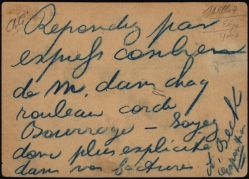 Répondez par
exprès combien
de m. dans chaq
rouleau corde
Bourrage – Soyez
donc plus explicite
dans vos factures
A. Beck